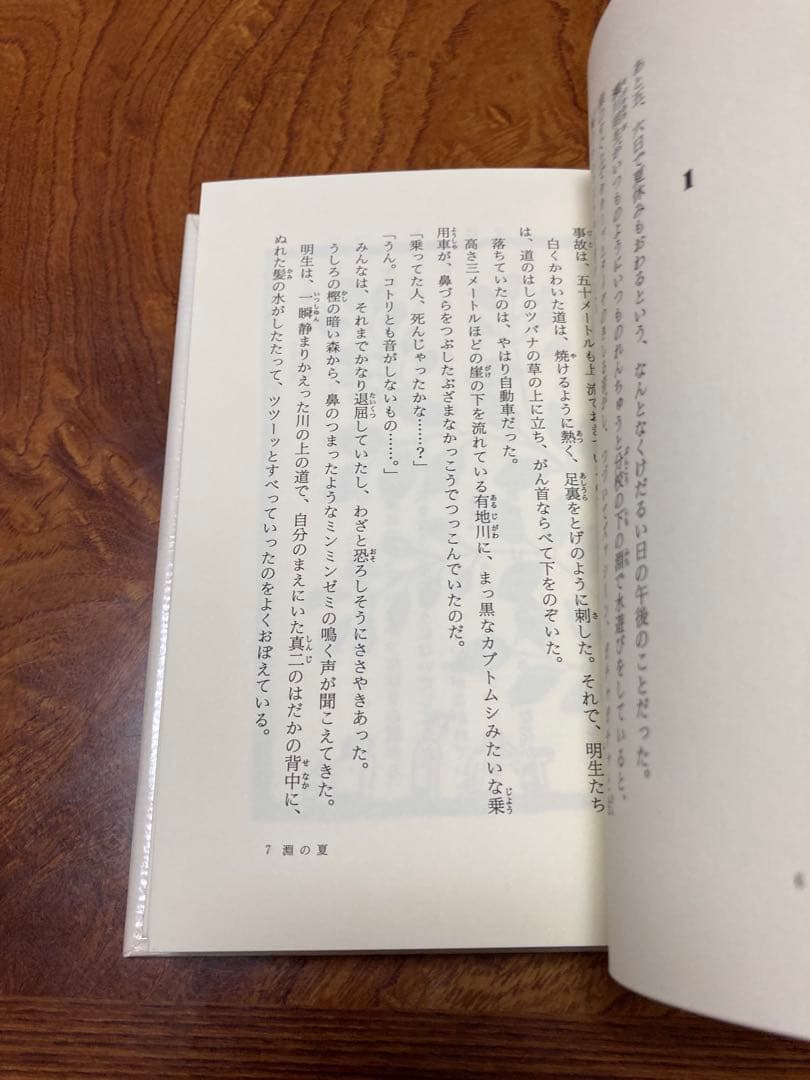 1
あと五、六日で夏休みもおわるという、なんとなくけだるい日の午後のことだった。
いつものように いつものれんちゅうと分校の下の淵で水遊びをしていると、
事故は、五十メートルも上流で
白くかわいた道は、焼けるように熱く、足裏をとげのように刺した。それで、明生たち
は、道のはしのツバナの草の上に立ち、がん首ならべて下をのぞいた。
落ちていたのは、やはり自動車だった。
高さ三メートルほどの崖の下を流れている有地川に、まっ黒なカブトムシみたいな乗
用車が、鼻づらをつぶしたぶざまなかっこうでつっこんでいたのだ。
「乗ってた人、死んじゃったかな……？」
「うん。コトリとも音がしないもの……。」
みんなは、それまでかなり退屈していたし、わざと恐ろしそうにささやきあった。
うしろの樫の暗い森から、鼻のつまったようなミンミンゼミの鳴く声が聞こえてきた。
明生は、一瞬静まりかえった川の上の道で、自分のまえにいた真二のはだかの背中に、
ぬれた髪の水がしたたって、ツツーッとすべっていったのをよくおぼえている。
7 淵の夏